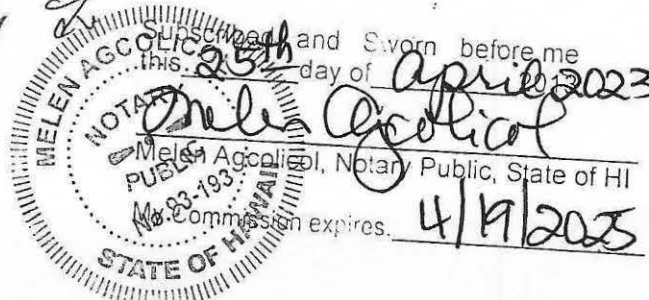 Subscribed and Sworn before me
this 25th day of april 2023
Melen Agcolicol
Melen Agcolicol, Notary Public, State of HI
My Commission expires. 4/19/2025
MELEN AGCOLICOL
NOTARY
PUBLIC
No. 93-193
STATE OF HAWAII